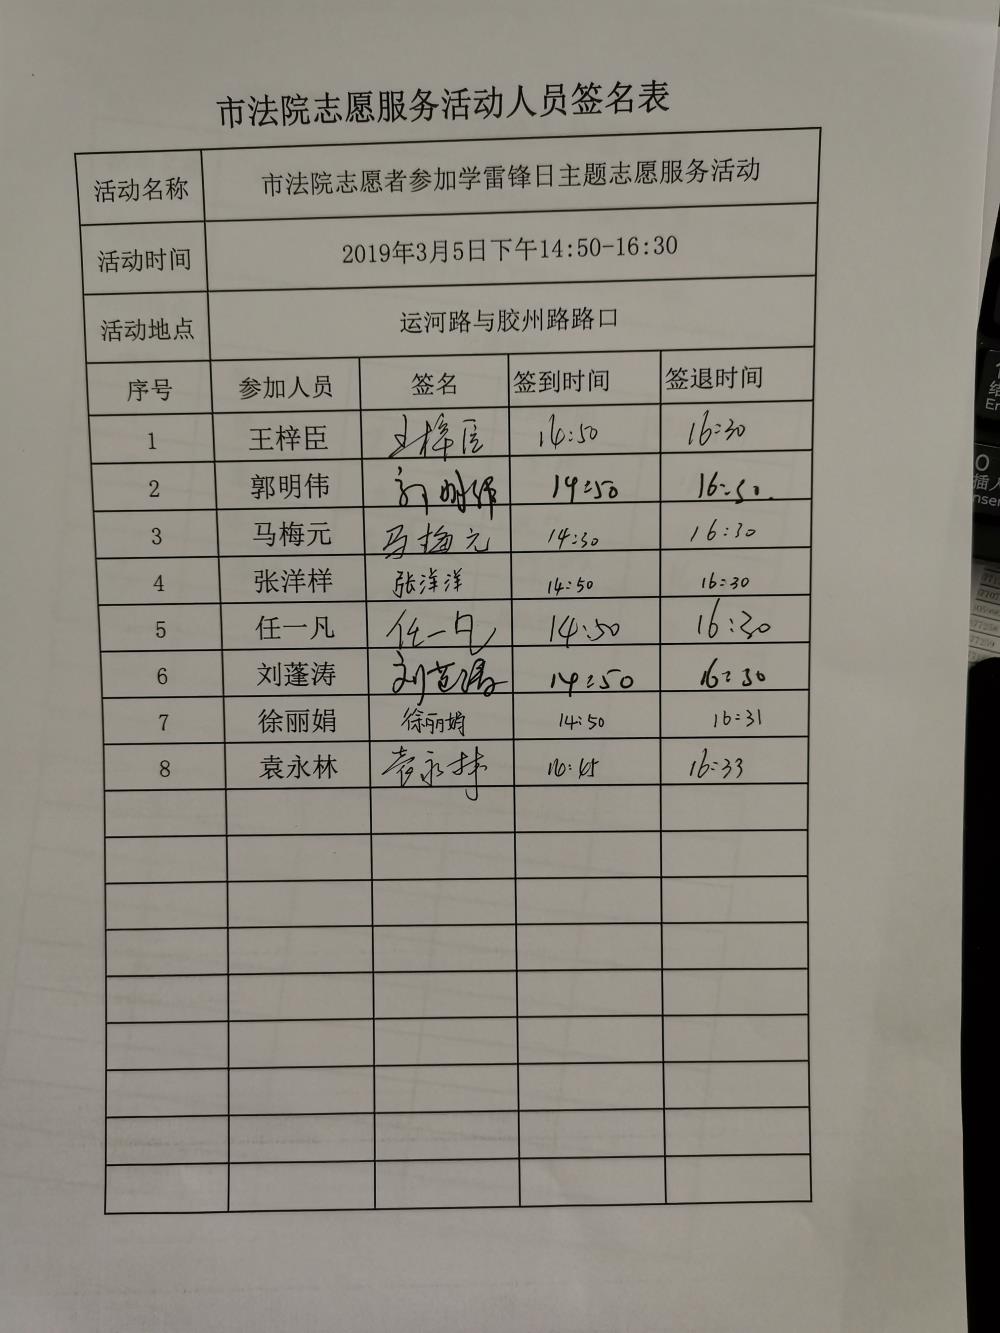 市法院志愿服务活动人员签名表
活动名称 市法院志愿者参加学雷锋日主题志愿服务活动
活动时间 2019年3月5日下午14:50-16:30
活动地点 运河路与胶州路路口
序号 参加人员 签名 签到时间 签退时间
1 王梓臣 王梓臣 14:50 16:30
2 郭明伟 郭明伟 14:50 16:30.
3 马梅元 马梅元 14:30 16:30
4 张洋样 张洋洋 14:50 16:30
5 任一凡 任一凡 14:50 16:30
6 刘蓬涛 刘蓬涛 14:50 16:30
7 徐丽娟 徐丽娟 14:50 16:31
8 袁永林 袁永林 16:33